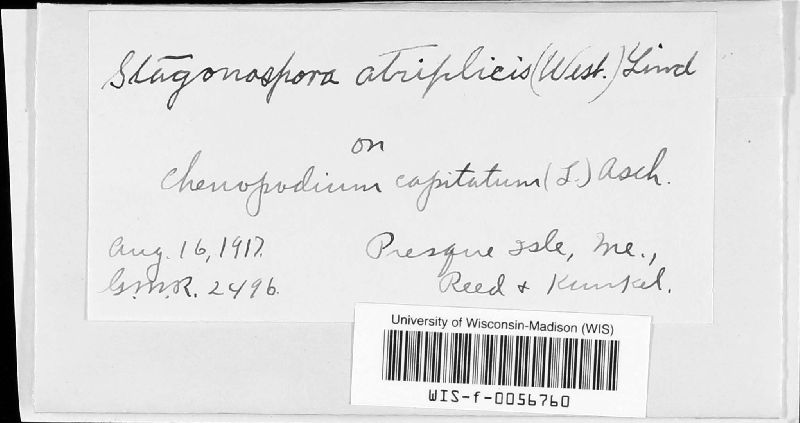 Stagonospora atriplicis (West.) Lind
on
Chenopodium capitatum (L.) Asch.
Aug. 16, 1917.
Presque Isle, Me.,
G.M.R. 2496.
Reed & Kunkel.
University of Wisconsin-Madison (WIS)
WIS-f-0056760